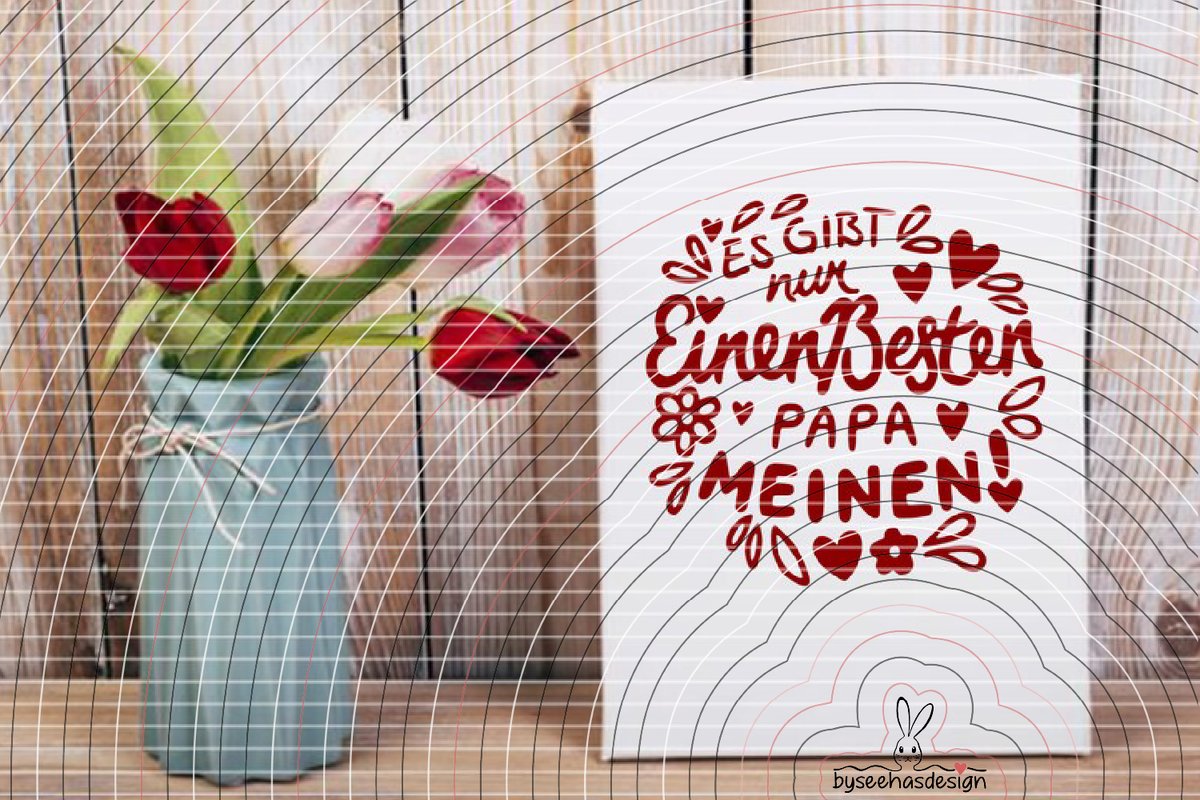 ES GIBT
nur
Einen Besten
PAPA
MEINEN!
byseehasdesign